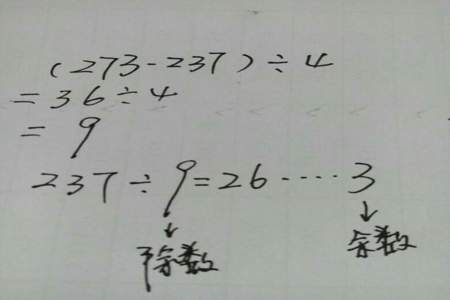 (273-237)÷4
=36÷4
=9
237÷9=26····3
↓ ↓
除数 余数